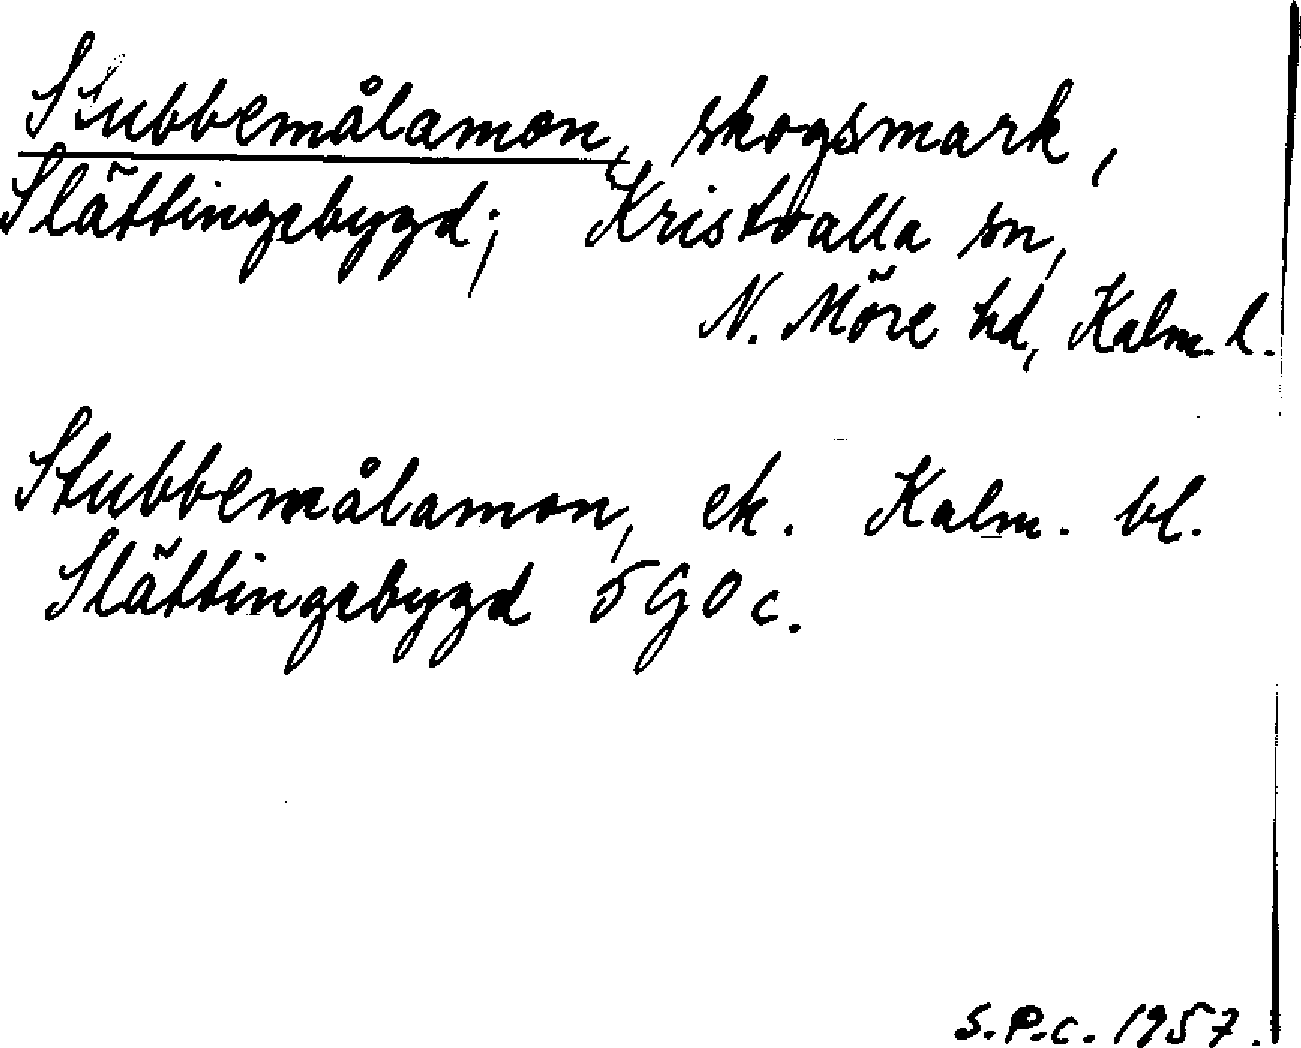 Stubbemålamon, skogsmark,
Slättingebygd; Kristvalla sn,
N. Möre hd, Kalm. l.
Stubbemålamon, ek. Kalm. bl.
Slättingebygd 5 G 0 c.
S.P.C. 1957.